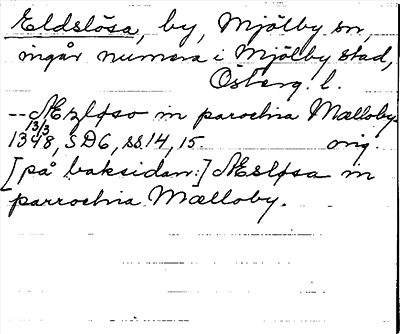 Eldslösa, by, Mjölby sn,
ingår numera i Mjölby stad,
Österg. l.
-- Æzløso in parochia Mælloby.
13/3
1348, SD6, ss 14, 15. orig.
[på baksidan:] Æsløsa in
parrochia Mælloby.